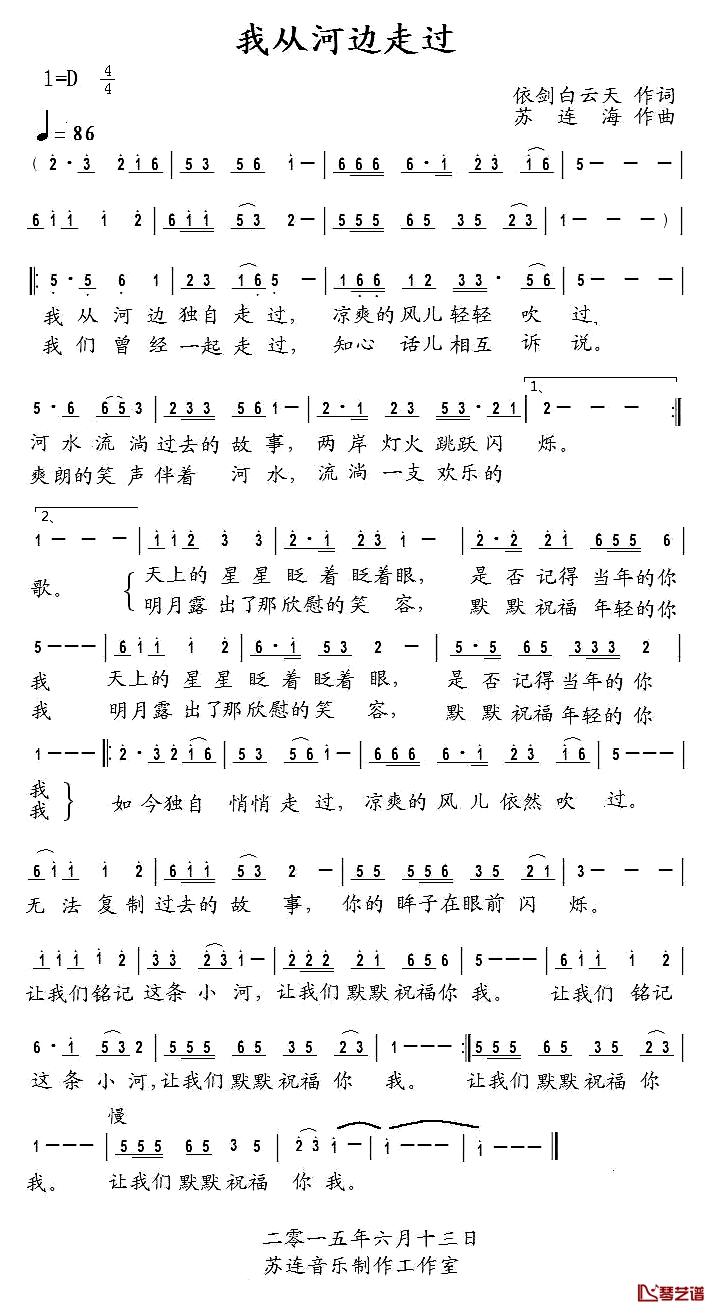 我从河边走过
1=D 4/4
依剑白云天 作词
苏连海 作曲
♩= 86
( 2·3 216 | 53 56 1 — | 666 6·1 23 16 | 5 — — |
611 1 2 | 611 53 2 — | 555 65 35 23 | 1 — — )
‖: 5·5 6 1 | 23 165 — | 166 12 33· 56 | 5 — — |
我从河边独自走过，凉爽的风儿轻轻吹过，
我们曾经一起走过，知心话儿相互诉说。
1、
5·6 653 | 2333 561 — | 2·2 23 53·21 | 2 — — :‖
河水流淌过去的故事，两岸灯火跳跃闪烁。
爽朗的笑声伴着河水，流淌一支欢乐的
2、
1 — — | 112 3 3 | 2·1 23 1 — | 2·2 21 655 6 |
歌。 天上的星星眨着眨着眼，是否记得当年的你
明月露出了那欣慰的笑容，默默祝福年轻的你
5 — — — | 611 1 2 | 6·1 53 2 — | 5·5 65 333 2 |
我 天上的星星眨着眨着眼，是否记得当年的你
我 明月露出了那欣慰的笑容，默默祝福年轻的你
1 — — — ‖: 2·3 2 16 | 53 561 — | 666 6·1 23 16 | 5 — — |
我 如今独自悄悄走过，凉爽的风儿依然吹过。
我
611 1 2 | 611 53 2 — | 555 65 35 21 | 3 — — |
无法复制过去的故事，你的眸子在眼前闪烁。
111 1 2 | 33 231 — | 222 21 65 56 | 5 — — — | 611 1 2 |
让我们铭记这条小河，让我们默默祝福你我。让我们铭记
6·1 532 | 555 65 35 23 | 1 — — — :‖ 555 65 35 23 |
这条小河,让我们默默祝福你我。让我们默默祝福你
慢
1 — — — | 555 65 3 5 | 23 1 — | 1 — — — | 1 — ‖
我。让我们默默祝福你我。
二零一五年六月十三日
苏连音乐制作工作室
琴艺谱